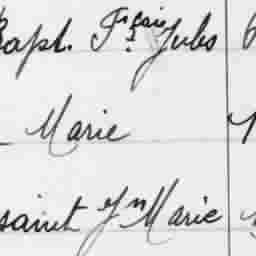 Bapt. Fçois Jules
Marie
saint Jn Marie